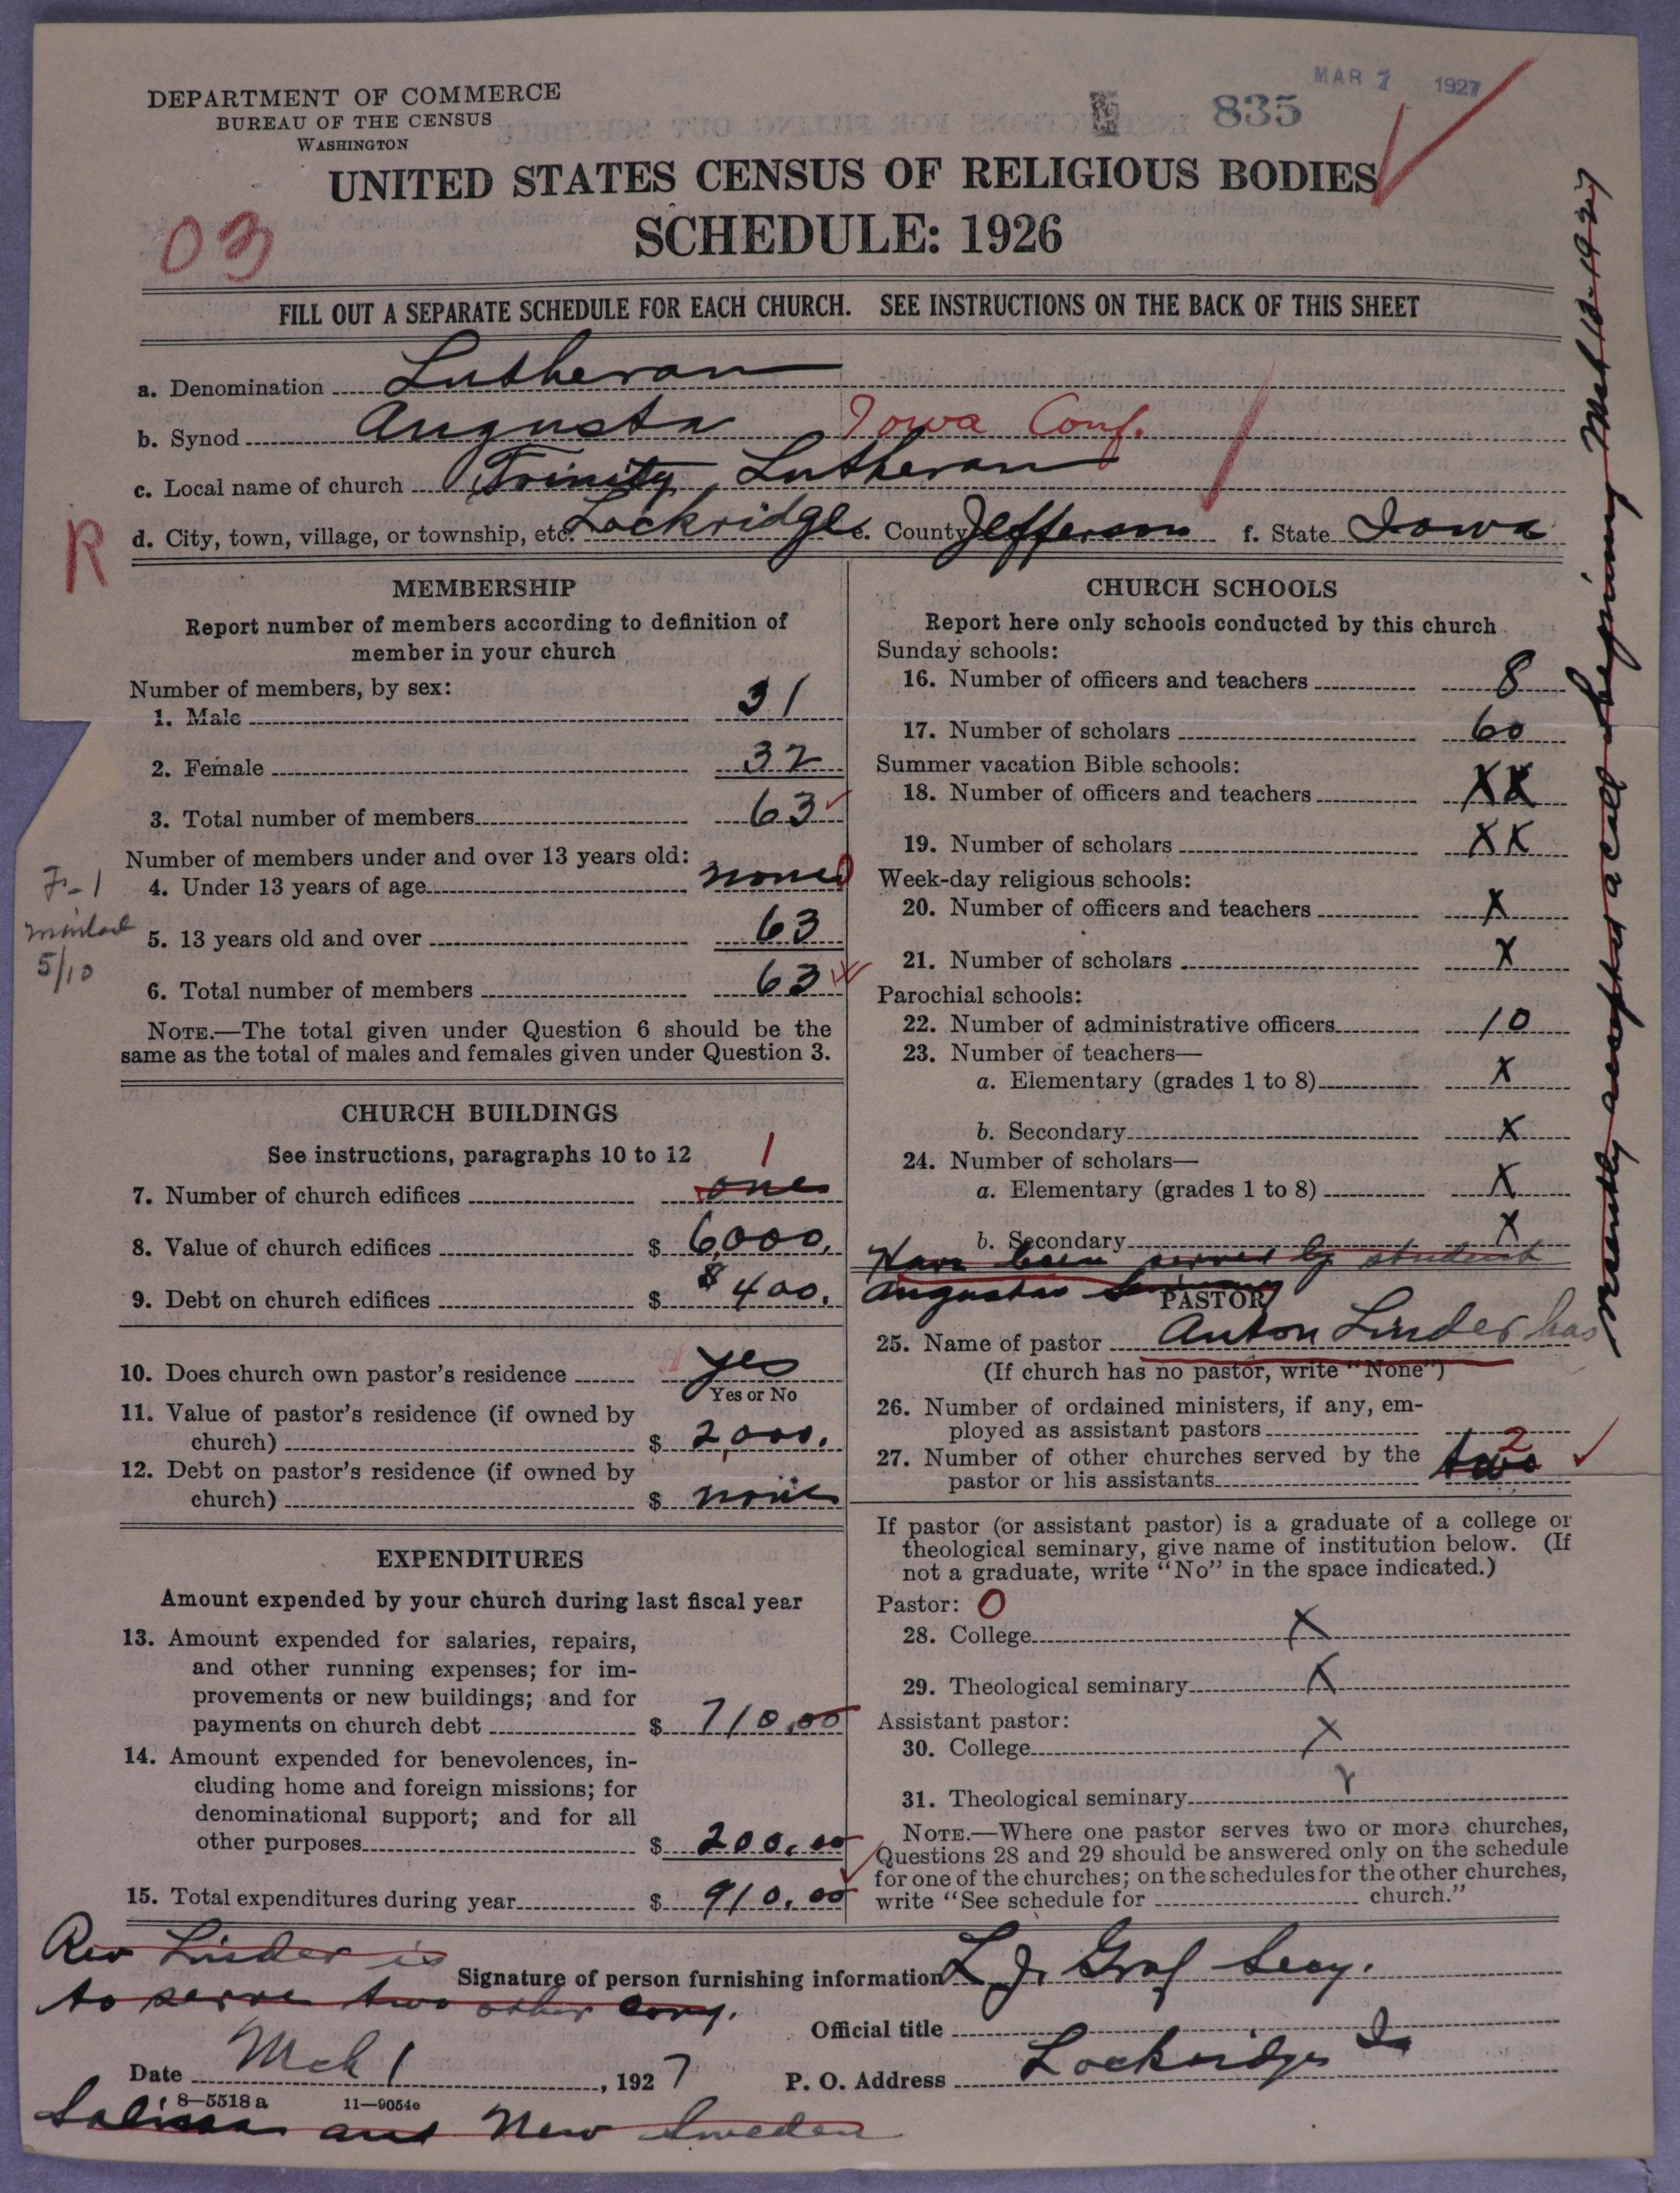 MAR 7 1927
835
DEPARTMENT OF COMMERCE
BUREAU OF THE CENSUS
WASHINGTON
UNITED STATES CENSUS OF RELIGIOUS BODIES
SCHEDULE: 1926
03
FILL OUT A SEPARATE SCHEDULE FOR EACH CHURCH. SEE INSTRUCTIONS ON THE BACK OF THIS SHEET
a. Denomination Lutheran
b. Synod Augusta Iowa Conf.
c. Local name of church Trinity Lutheran
R
d. City, town, village, or township, etc. Lockridge e. County Jefferson f. State Iowa
MEMBERSHIP
Report number of members according to definition of
member in your church
Number of members, by sex:
1. Male 31
2. Female 32
3. Total number of members 63
Number of members under and over 13 years old:
4. Under 13 years of age none 0
5. 13 years old and over 63
6. Total number of members 63
NOTE.—The total given under Question 6 should be the
same as the total of males and females given under Question 3.
F-1
5/10
CHURCH BUILDINGS
See instructions, paragraphs 10 to 12
7. Number of church edifices one 1
8. Value of church edifices $ 6,000.
9. Debt on church edifices $ $400.
10. Does church own pastor's residence yes
Yes or No
11. Value of pastor's residence (if owned by
church) $ 2,000.
12. Debt on pastor's residence (if owned by
church) $ none
EXPENDITURES
Amount expended by your church during last fiscal year
13. Amount expended for salaries, repairs,
and other running expenses; for im-
provements or new buildings; and for
payments on church debt $ 710.00
14. Amount expended for benevolences, in-
cluding home and foreign missions; for
denominational support; and for all
other purposes $ 200.00
15. Total expenditures during year $ 910.00
CHURCH SCHOOLS
Report here only schools conducted by this church
Sunday schools:
16. Number of officers and teachers 8
17. Number of scholars 60
Summer vacation Bible schools:
18. Number of officers and teachers XX
19. Number of scholars XX
Week-day religious schools:
20. Number of officers and teachers X
21. Number of scholars X
Parochial schools:
22. Number of administrative officers 10
23. Number of teachers—
a. Elementary (grades 1 to 8) X
b. Secondary X
24. Number of scholars—
a. Elementary (grades 1 to 8) X
b. Secondary X
Have been served by student
Augustas
PASTOR
25. Name of pastor Anton Linder has
(If church has no pastor, write "None")
26. Number of ordained ministers, if any, em-
ployed as assistant pastors
27. Number of other churches served by the
pastor or his assistants two 2
If pastor (or assistant pastor) is a graduate of a college or
theological seminary, give name of institution below. (If
not a graduate, write "No" in the space indicated.)
Pastor: 0
28. College X
29. Theological seminary X
Assistant pastor:
30. College X
31. Theological seminary
NOTE.—Where one pastor serves two or more churches,
Questions 28 and 29 should be answered only on the schedule
for one of the churches; on the schedules for the other churches,
write "See schedule for church."
recently accepted a call beginning Mch 13-1927
Rev Linder is
to serve two other cong.
Signature of person furnishing information L J. Graf Secy.
Official title
Date Mch 1, 1927
P. O. Address Lockridge Ia
8—5518 a 11—9054e
Salina and New Sweden